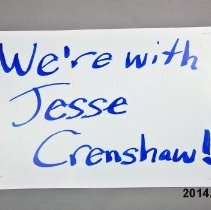 We're with
Jesse
Crenshaw!
2014.